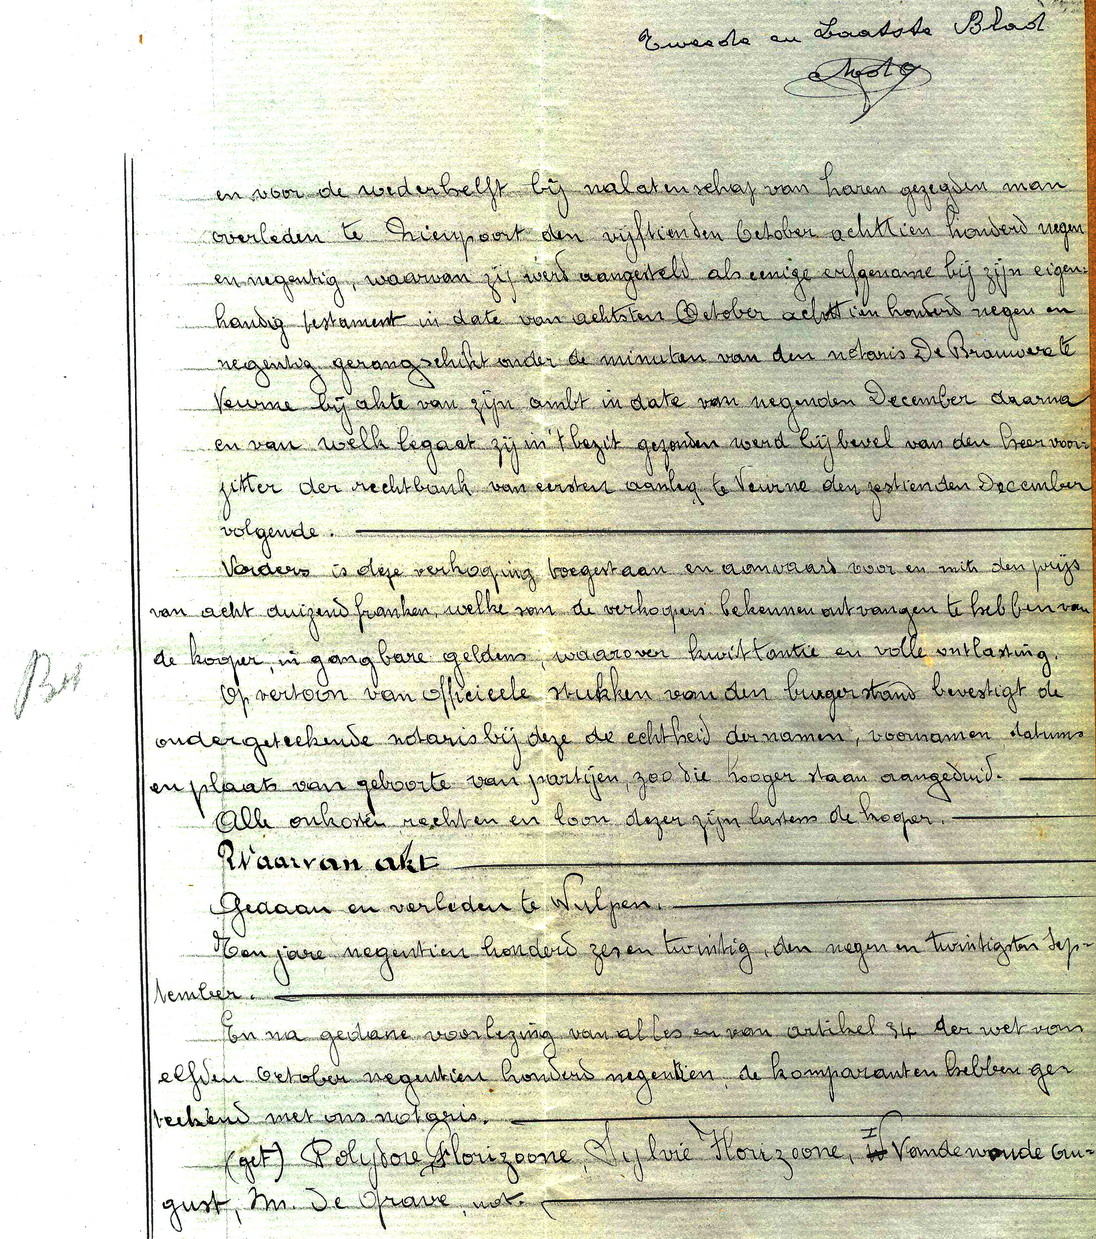 Tweede en Laatste Blad
en voor de wederhelft bij nalatenschap van haren gezegden man
overleden te Nieupoort den vijftienden October achttien honderd negen
en negentig, waarvan zij werd aangesteld als eenige erfgename bij zijn eigen-
handig testament in date van achtsten October achttien honderd negen en
negentig gerangschikt onder de minuten van den notaris De Brauwere te
Veurne bij akte van zijn ambt in date van negenden December daarna
en van welk legaat zij in 't bezit gezonden werd bij bevel van den heer voor-
zitter der rechtbank van eersten aanleg te Veurne den zestienden December
volgende.
Vorders is deze verkoping toegestaan en aanvaard voor en mits den prijs
van acht duizend franken, welke som de verkopers bekennen ontvangen te hebben van
de kooper, in gangbare geldens, waarover kwittantie en volle ontlasting.
Op vertoon van officieele stukken van den burgerstand bevestigt de
ondergeteekende notaris bij deze de echtheid der namen, voornamen, datums
en plaats van geboorte van partijen, zoo die hooger staan aangeduid.
Alle onkosten rechten en loon dezer zijn lastens de kooper.
Waarvan akt
Gedaan en verleden te Wulpen.
Ten jare negentien honderd zes en twintig, den negen en twintigsten Sep-
tember.
En na gedane voorlezing van alles en van artikel 34 der wet van
elfden October negentien honderd negentien, de komparanten hebben ge-
teekend met ons notaris.
(get) Polydore Florizoone, Sylvie Florizoone, Vandewoude Au-
gust, M. De Grave, not.